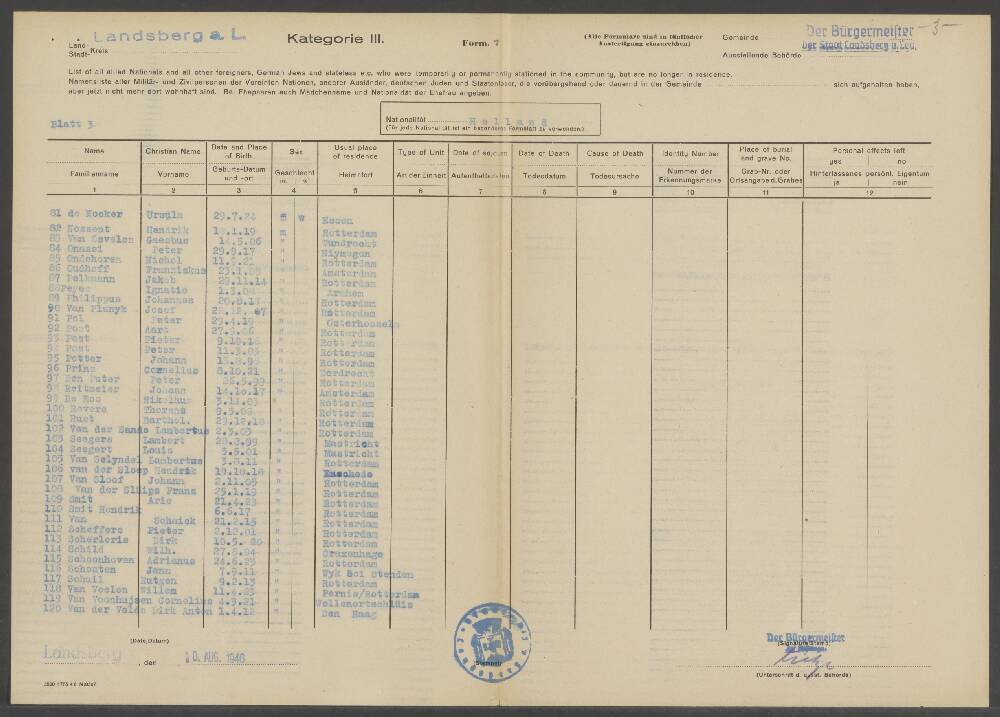 Land-
Stadt-Kreis Landsberg a. L.
Kategorie III.
Form. 7
(Alle Formulare sind in fünffacher
Ausfertigung einzureichen)
Gemeinde
Ausstellende Behörde
Der Bürgermeister
Der Stadt Landsberg a. Lech
-3-
List of all allied Nationals and all other foreigners, German Jews and stateless etc. who were temporarily or permanently stationed in the community, but are no longer in residence.
Namensliste aller Militär- und Zivilpersonen der Vereinten Nationen, anderer Ausländer, deutscher Juden und Staatenloser, die vorübergehend oder dauernd in der Gemeinde sich aufgehalten haben,
aber jetzt nicht mehr dort wohnhaft sind. Bei Ehepaaren auch Mädchenname und Nationalität der Ehefrau angeben.
Blatt 3
Nationalität Holland
(Für jede Nationalität ist ein besonderes Formblatt zu verwenden)
Name Christian Name Date and Place of Birth Sex Usual place of residence Type of Unit Date of sojourn Date of Death Cause of Death Identity Number Place of burial and grave No. Personal effects left yes no
Familienname Vorname Geburts-Datum und -ort Geschlecht m. w. Heimatort Art der Einheit Aufenthaltszeiten Todesdatum Todesursache Nummer der Erkennungsmarke Grab-Nr. oder Ortsangabe d. Grabes Hinterlassenes persönl. Eigentum ja nein
1 2 3 4 5 6 7 8 9 10 11 12
81 de Nocker Ursula 29.7.24 w Essen
82 Nossept Hendrik 18.1.19 m Rotterdam
83 Van Oevelen Gaesbus 14.5.06 " Dundrecht
84 Onazei Peter 29.9.17 " Niymegen
85 Ondehoren Michel " Rotterdam
86 Oudhoff Franziskus " Amsterdam
87 Pelkmann Jakob 29.11.14 " Rotterdam
88 Peyee Ignatio " Arnhem
89 Philippus Johannes " Rotterdam
90 Van Planyk Josef " Rotterdam
91 Pol Peter 29.4.19 " Osterhesseln
92 Poot Aart " Rotterdam
93 Post Pieter " Rotterdam
94 Post Peter 11.3.03 " Rotterdam
95 Potter Johann " Rotterdam
96 Prins Cornelius 8.10.21 " Dordrecht
97 Den Puter Peter 26.5.99 " Rotterdam
98 Reitmeier Johann 14.10.17 " Amsterdam
99 De Roo Nikolaus " Rotterdam
100 Rovers Thorens " Rotterdam
101 Ruet Barthol. " Rotterdam
102 Van der Sande Lambertus 2.3.05 " Rotterdam
103 Seegers Lambert " Mastricht
104 Seegert Louis 5.5.01 " Mastricht
105 Van Selyndel Lambertus 3.8.11 " Rotterdam
106 van der Sloep Hendrik 19.10.18 " Enschede
107 Van Sloof Johann 2.11.05 " Rotterdam
108 Van der Sliips Frans 25.1.19 " Rotterdam
109 Smit Arie 21.4.23 " Rotterdam
110 Smit Hendrik 6.6.17 " Rotterdam
111 Van Schaick 21.2.15 " Rotterdam
112 Scheffers Pieter 2.12.01 " Rotterdam
113 Scherleris Dirk " Rotterdam
114 Schild Wilh. 27.8.04 " Gruxenhage
115 Schoonhoven Adrianus 24.6.23 " Rotterdam
116 Schouten Jann 7.9.11 " Wyk bei Stenden
117 Schuil Rutgen 9.2.13 " Rotterdam
118 Van Veslon Willem 11.4.23 " Pernis/Rotterdam
119 Van Voonhujsen Cornelius 4.9.21 " Wellenortschlüis
120 Van der Velde Dirk Anton 1.4.12 " Den Haag
(Date, Datum)
Landsberg, den 10. AUG. 1946
Der Bürgermeister
(Signature Stamp)
(Unterschrift d. ausst. Behörde)